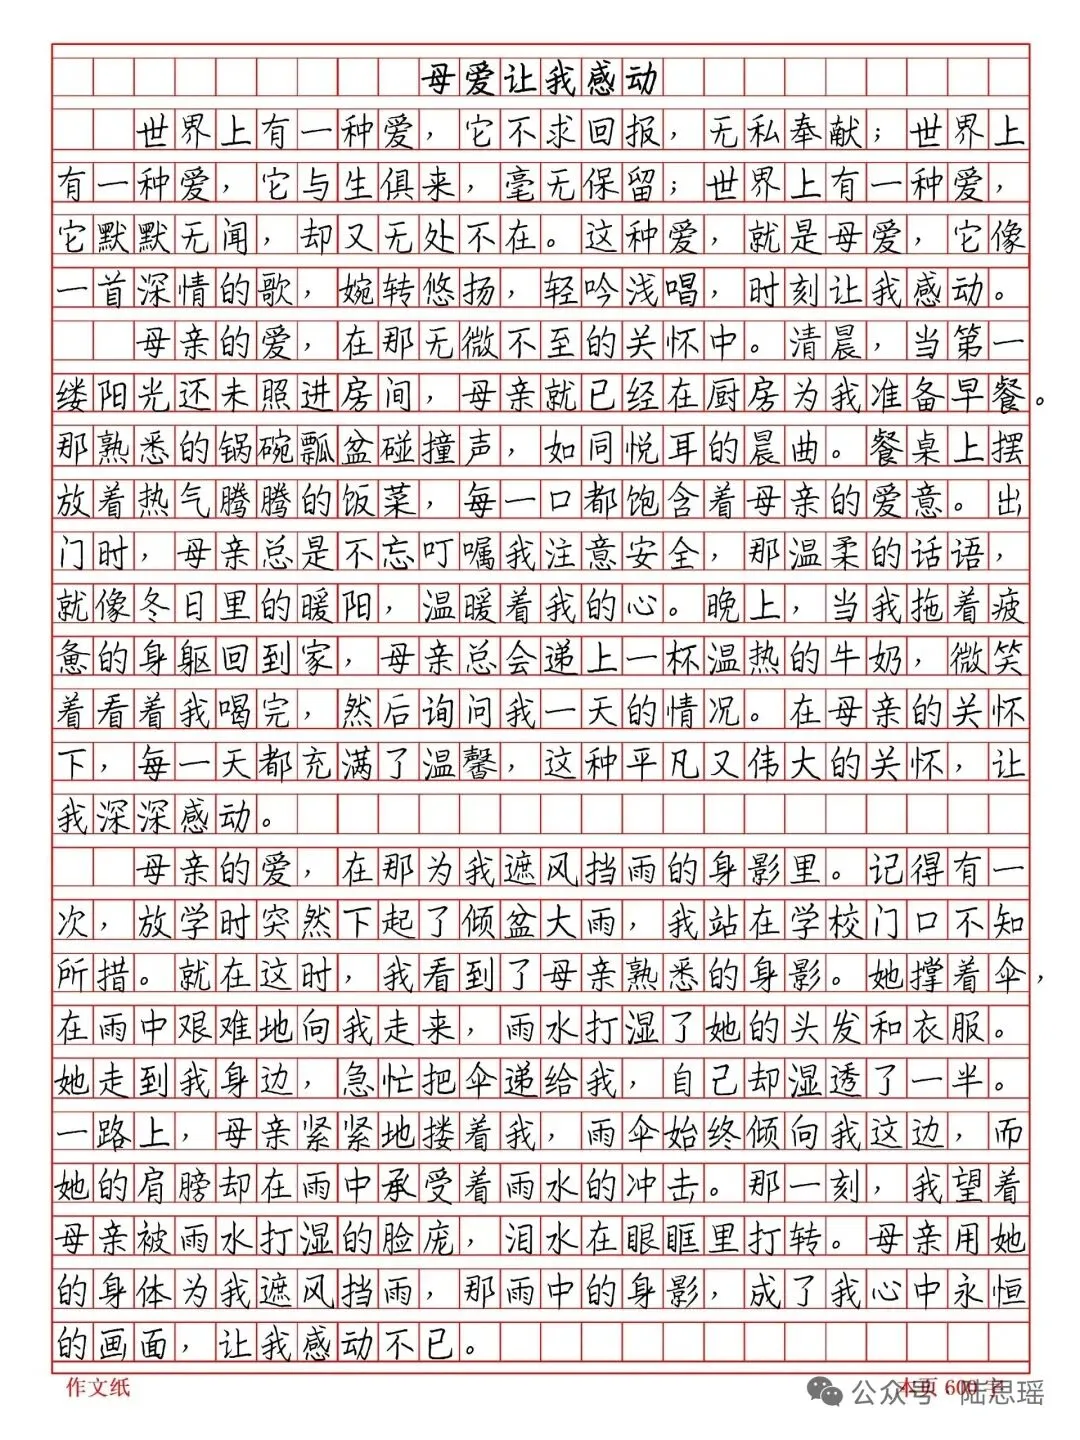 母爱让我感动
世界上有一种爱，它不求回报，无私奉献；世界上
有一种爱，它与生俱来，毫无保留；世界上有一种爱，
它默默无闻，却又无处不在。这种爱，就是母爱，它像
一首深情的歌，婉转悠扬，轻吟浅唱，时刻让我感动。
母亲的爱，在那无微不至的关怀中。清晨，当第一
缕阳光还未照进房间，母亲就已经在厨房为我准备早餐。
那熟悉的锅碗瓢盆碰撞声，如同悦耳的晨曲。餐桌上摆
放着热气腾腾的饭菜，每一口都饱含着母亲的爱意。出
门时，母亲总是不忘叮嘱我注意安全，那温柔的话语，
就像冬日里的暖阳，温暖着我的心。晚上，当我拖着疲
惫的身躯回到家，母亲总会递上一杯温热的牛奶，微笑
着看着我喝完，然后询问我一天的情况。在母亲的关怀
下，每一天都充满了温馨，这种平凡又伟大的关怀，让
我深深感动。
母亲的爱，在那为我遮风挡雨的身影里。记得有一
次，放学时突然下起了倾盆大雨，我站在学校门口不知
所措。就在这时，我看到了母亲熟悉的身影。她撑着伞，
在雨中艰难地向我走来，雨水打湿了她的头发和衣服。
她走到我身边，急忙把伞递给我，自己却湿透了一半。
一路上，母亲紧紧地搂着我，雨伞始终倾向我这边，而
她的肩膀却在雨中承受着雨水的冲击。那一刻，我望着
母亲被雨水打湿的脸庞，泪水在眼眶里打转。母亲用她
的身体为我遮风挡雨，那雨中的身影，成了我心中永恒
的画面，让我感动不已。
作文纸
本页 600 字
公众号·陆思瑶